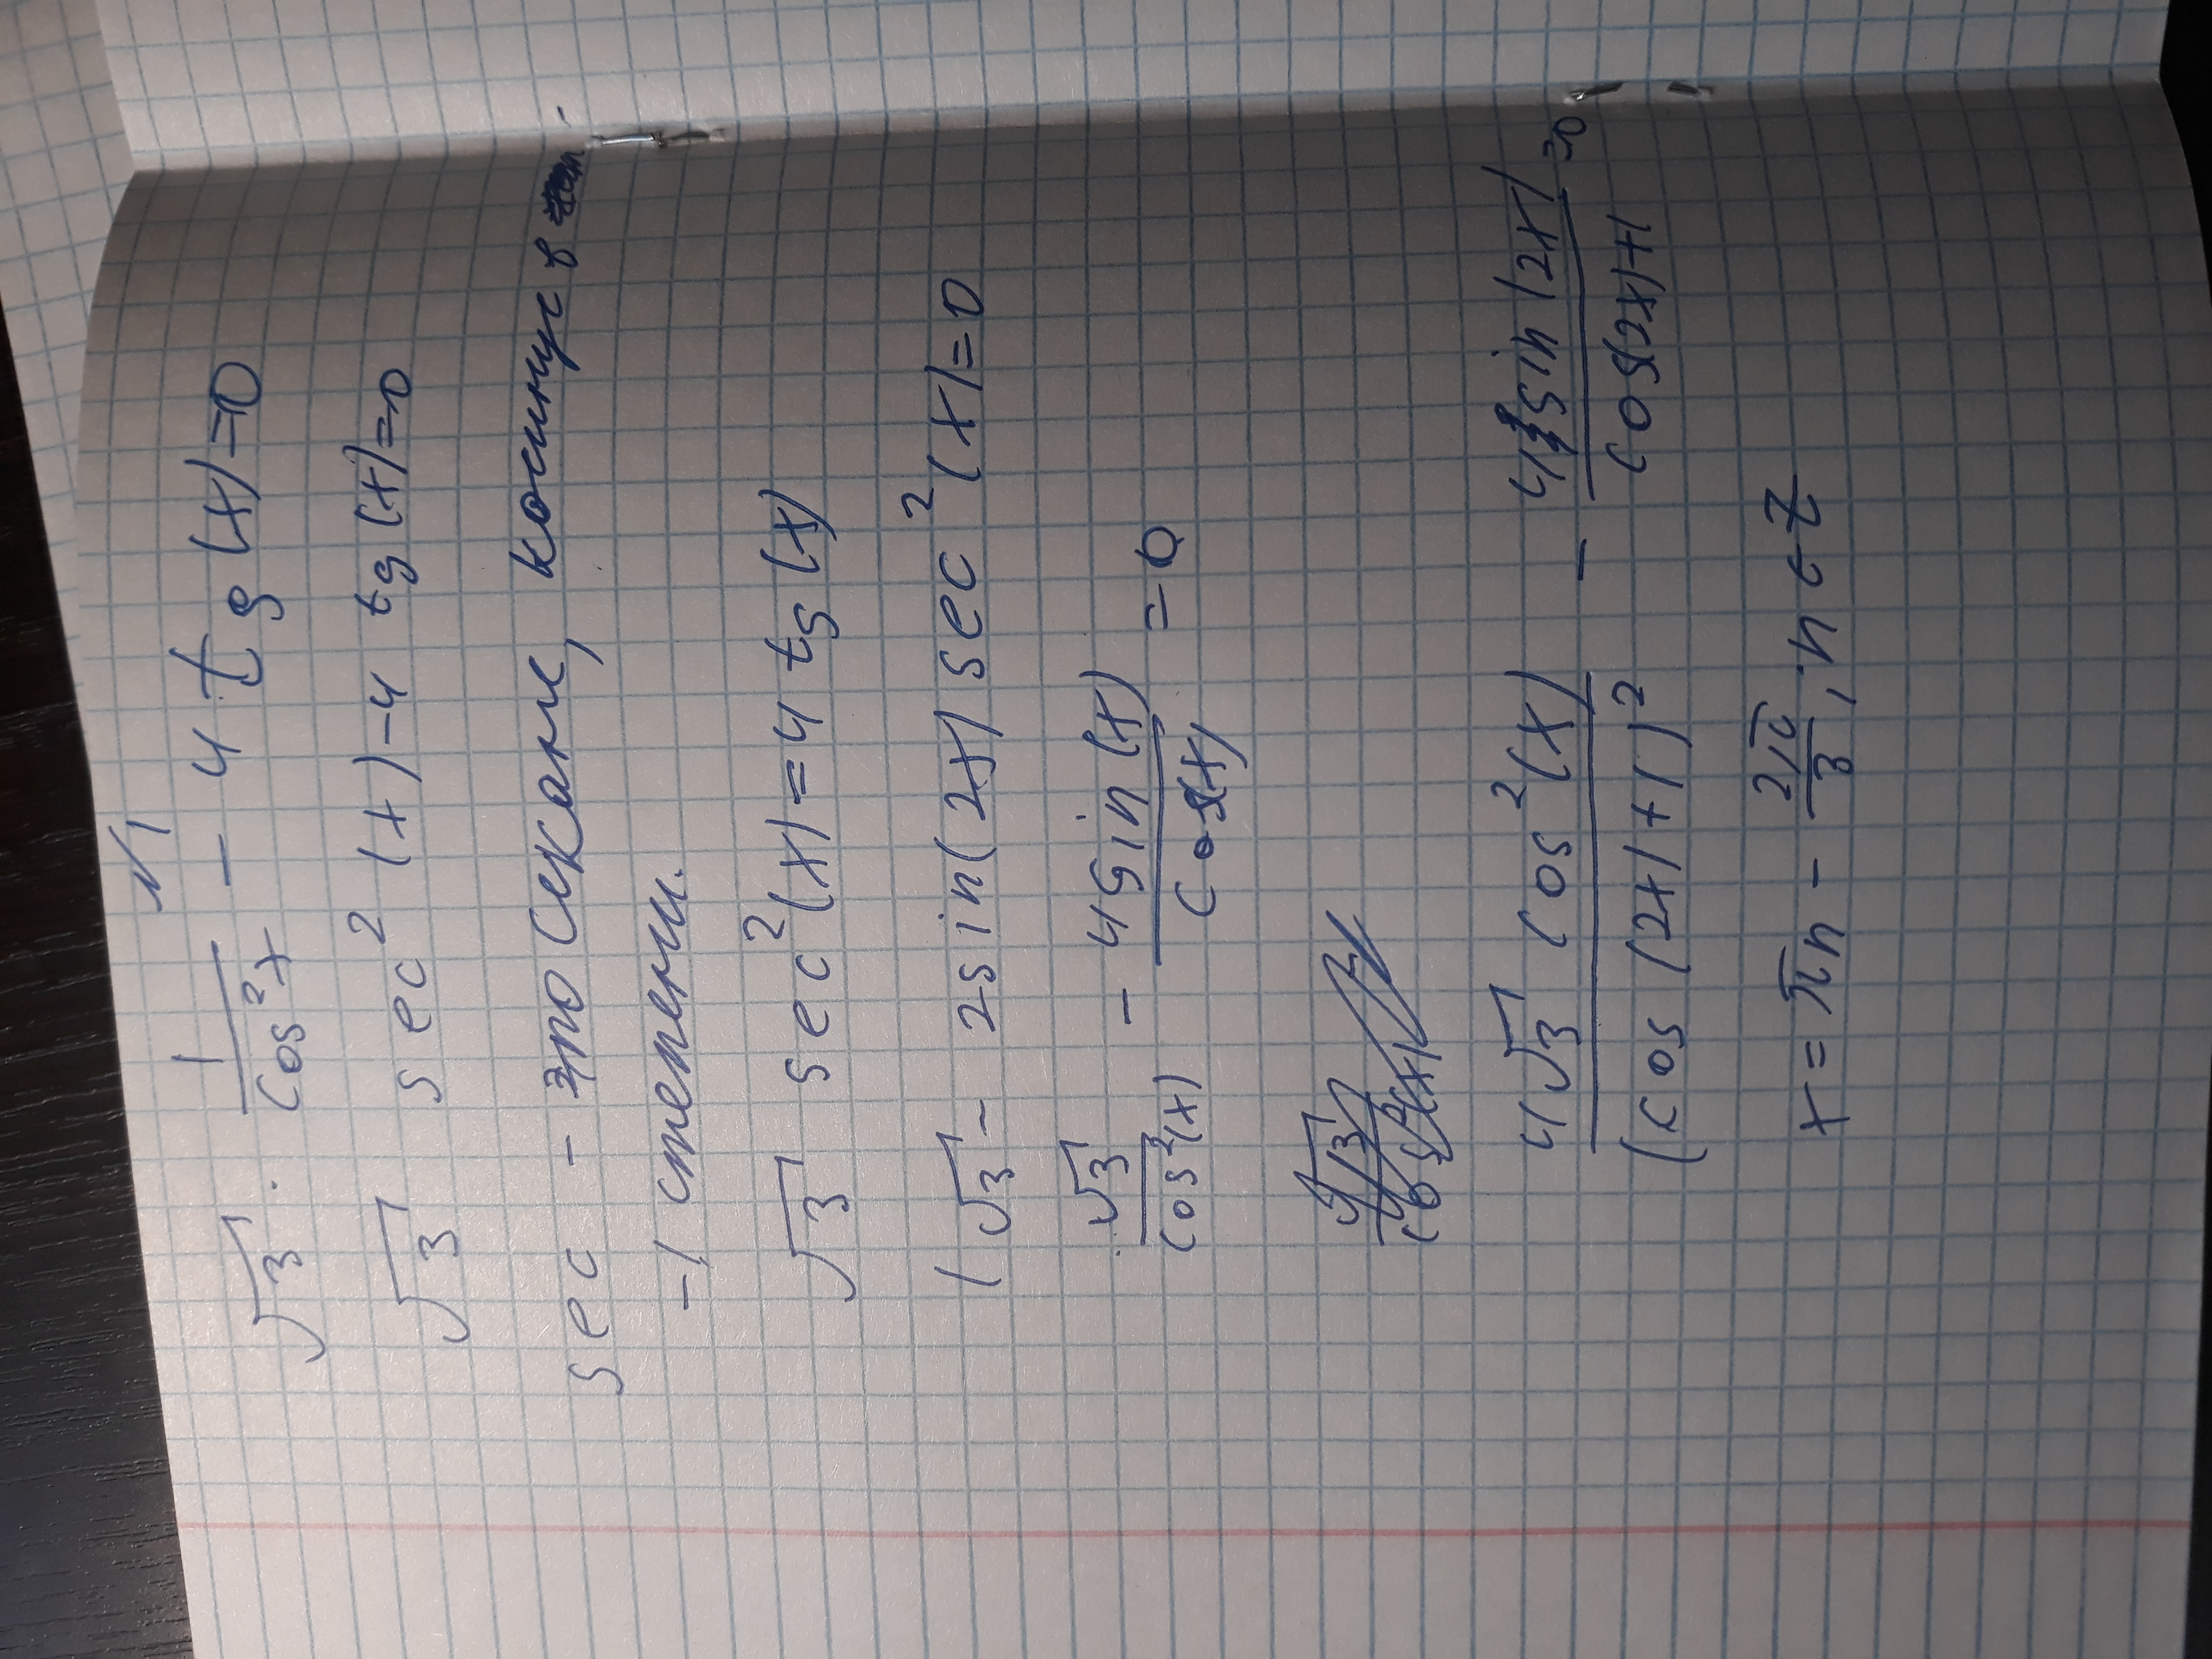 №1
√3 · 1/cos²x - 4 tg(x)=0
√3 sec²(x)-4 tg(x)=0
sec - это секанс, косинус в
-1 степени.
√3 sec²(x)=4 tg(x)
(√3 - 2sin(2x) sec²(x)=0
√3/cos²(x) - 4sin(x)/cos(x) = 0
4√3 cos²(x)/(cos(2x)+1)² - 4sin(2x)/cos(2x)+1 =0
x=πn - 2π/3, n∈Z